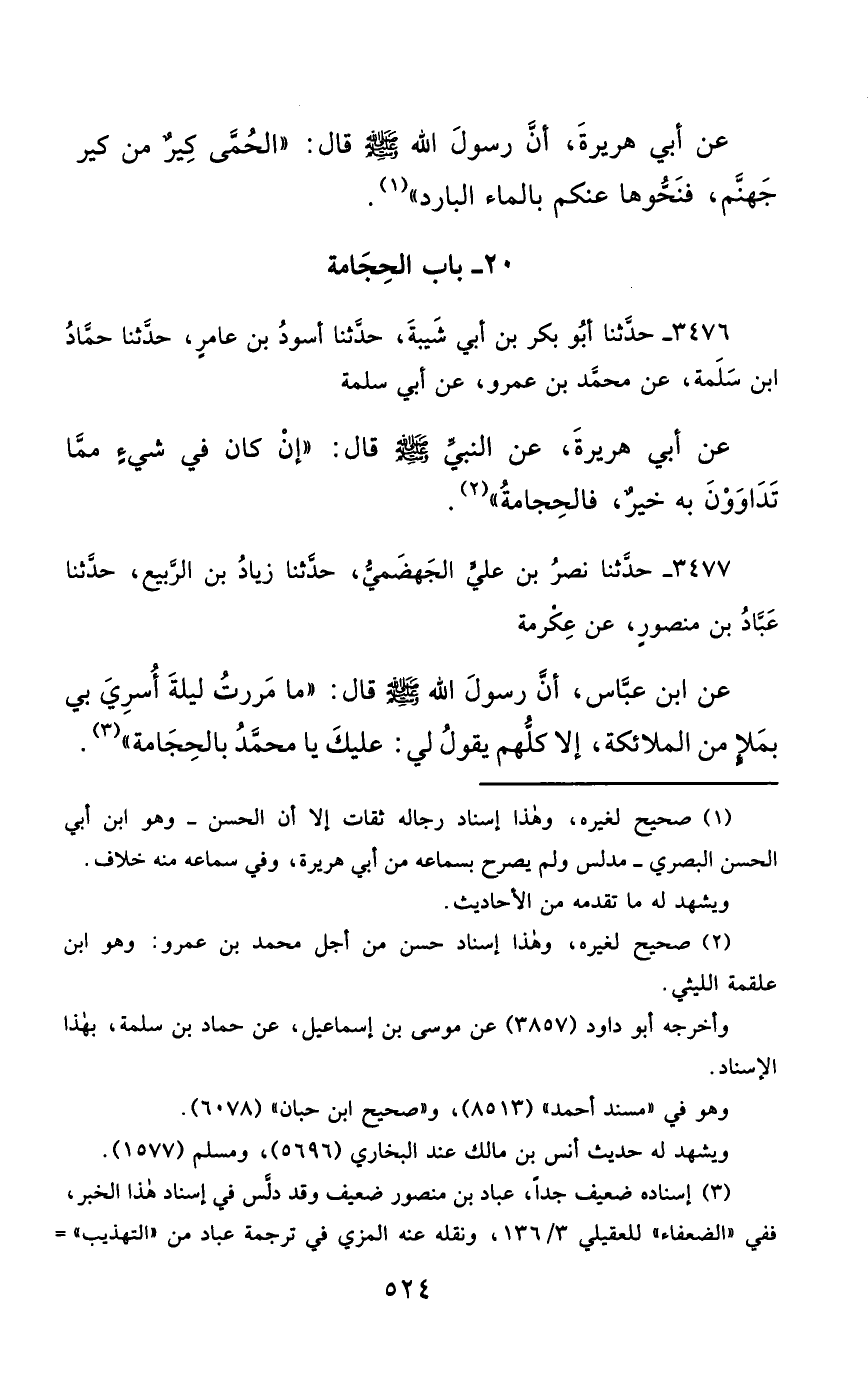 عن أبي هريرةَ، أنَّ رسولَ الله ﷺ قال: «الحُمَّى كِيرٌ من كير
جَهنَّم، فنَحُّوها عنكم بالماء البارد»(١).
٢٠ـ باب الحِجَامة
٣٤٧٦ـ حدَّثنا أبُو بكر بن أبي شَيبةَ، حدَّثنا أسودُ بن عامرٍ، حدَّثنا حمَّادُ
ابن سَلَمة، عن محمَّد بن عمرو، عن أبي سلمة
عن أبي هريرةَ، عن النبيِّ ﷺ قال: «إنْ كان في شيءٍ ممَّا
تَدَاوَوْنَ به خيرٌ، فالحِجامةُ»(٢).
٣٤٧٧ـ حدَّثنا نصرُ بن عليٍّ الجَهضَميُّ، حدَّثنا زيادُ بن الرَّبيع، حدَّثنا
عَبَّادُ بن منصورٍ، عن عِكْرمة
عن ابن عبَّاس، أنَّ رسولَ الله ﷺ قال: «ما مَررتُ ليلةَ أُسرِيَ بي
بمَلإٍ من الملائكة، إلا كلُّهم يقولُ لي: عليكَ يا محمَّدُ بالحِجَامة»(٣).
(١) صحيح لغيره، وهٰذا إسناد رجاله ثقات إلا أن الحسن ـ وهو ابن أبي
الحسن البصري ـ مدلس ولم يصرح بسماعه من أبي هريرة، وفي سماعه منه خلاف.
ويشهد له ما تقدمه من الأحاديث.
(٢) صحيح لغيره، وهٰذا إسناد حسن من أجل محمد بن عمرو: وهو ابن
علقمة الليثي.
وأخرجه أبو داود (٣٨٥٧) عن موسى بن إسماعيل، عن حماد بن سلمة، بهٰذا
الإسناد.
وهو في «مسند أحمد» (٨٥١٣)، و«صحيح ابن حبان» (٦٠٧٨).
ويشهد له حديث أنس بن مالك عند البخاري (٥٦٩٦)، ومسلم (١٥٧٧).
(٣) إسناده ضعيف جداً، عباد بن منصور ضعيف وقد دلَّس في إسناد هٰذا الخبر،
ففي «الضعفاء» للعقيلي ٣/ ١٣٦، ونقله عنه المزي في ترجمة عباد من «التهذيب» =
٥٢٤